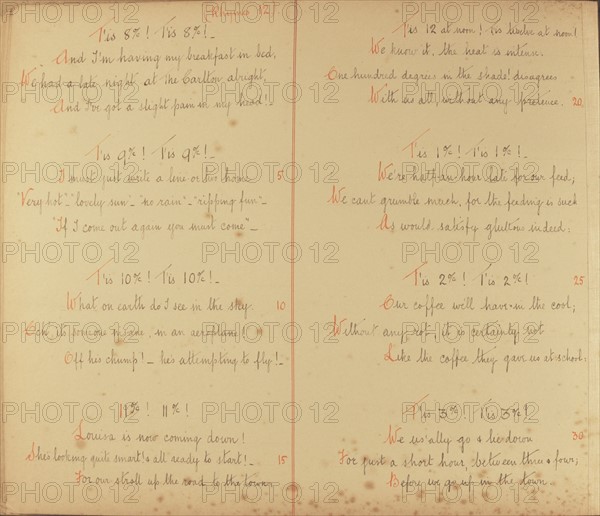 Rhymes 12.
T'is 8%! T'is 8%!_
And I'm having my breakfast in bed,
We had a late night, at the Carlton alright,
And I've got a slight pain in my head!
T'is 9%! T'is 9%!_
I must just write a line or two home 5
"Very hot"_ "lovely sun"_ "no rain"_ "ripping fun"_
"If I come out again you must come"_
T'is 10%! T'is 10%!_
What on earth do I see in the sky. 10
in an aeroplane!
Off his chump!_ he's attempting to fly!_
11%! 11%!
Louisa is now coming down!
She's looking quite smart! & all ready to start!_ 15
For our stroll up the road to the town
T'is 12 at noon! T'is twelve at noon!
We know it, the heat is intense.
One hundred degrees in the shade! disagrees
With us all, without any pretence. 20
T'is 1%! T'is 1%!_
We're half-an-hour late for our feed;
We can't grumble much, for the feeding is such
As would satisfy gluttons indeed:
T'is 2%! T'is 2%! 25
Our coffee we'll have in the cool;
Without any rot, it is certainly not
Like the coffee they gave us at school:
T'is 3%! T'is 3%!
We us'ally go & lie down 30
For just a short hour, between three & four;
Before we go up in the town
PHOTO 12